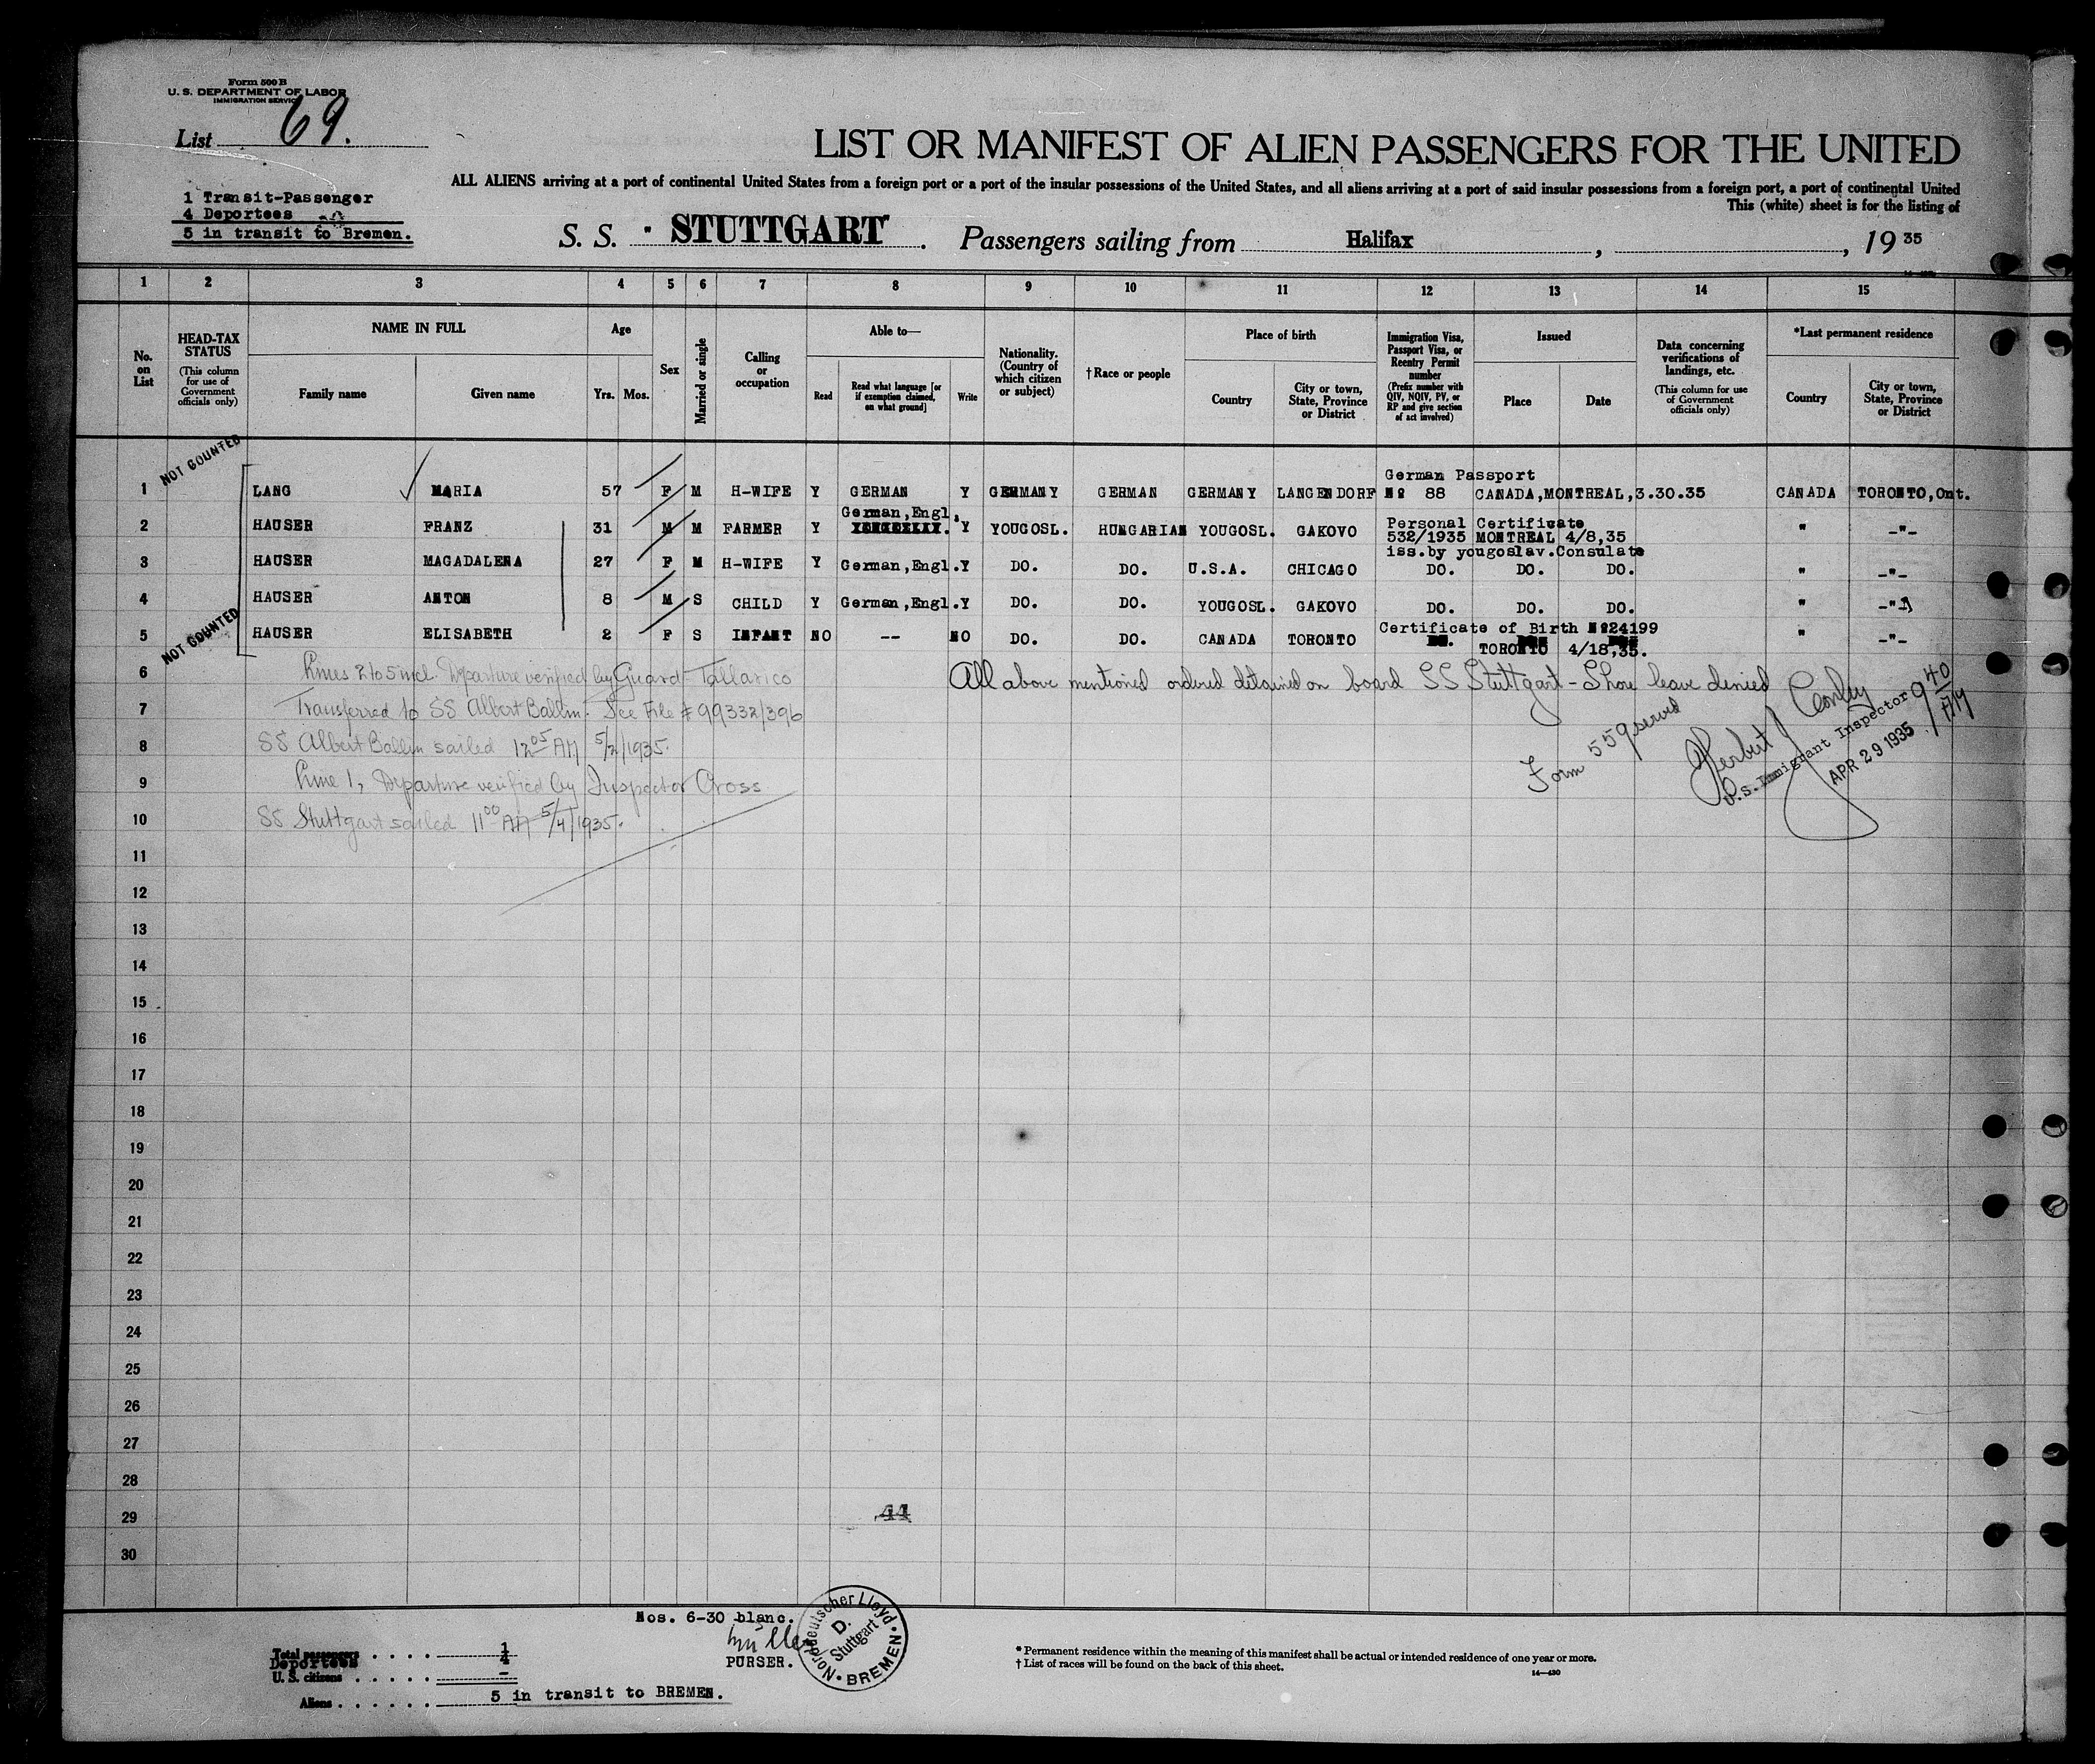 Form 500 B
U. S. DEPARTMENT OF LABOR
IMMIGRATION SERVICE
List 69.
LIST OR MANIFEST OF ALIEN PASSENGERS FOR THE UNITED
ALL ALIENS arriving at a port of continental United States from a foreign port or a port of the insular possessions of the United States, and all aliens arriving at a port of said insular possessions from a foreign port, a port of continental United
This (white) sheet is for the listing of
1 Transit-Passenger
4 Deportees
5 in transit to Bremen.
S. S. STUTTGART. Passengers sailing from Halifax, , 19 35
1 2 3 4 5 6 7 8 9 10 11 12 13 14 15
No. on List
HEAD-TAX STATUS (This column for use of Government officials only)
NAME IN FULL
Family name
Given name
Age
Yrs. Mos.
Sex
Married or single
Calling or occupation
Able to—
Read
Read what language [or if exemption claimed, on what ground]
Write
Nationality. (Country of which citizen or subject)
† Race or people
Place of birth
Country
City or town, State, Province or District
Immigration Visa, Passport Visa, or Reentry Permit number (Prefix number with QIV, NQIV, PV, or RP and give section of act involved)
Issued
Place
Date
Data concerning verifications of landings, etc. (This column for use of Government officials only)
*Last permanent residence
Country
City or town, State, Province or District
NOT COUNTED
German Passport
1 LANG MARIA 57 F M H-WIFE Y GERMAN Y GERMANY GERMAN GERMANY LANGENDORF Nº 88 CANADA,MONTREAL,3.30.35 CANADA TORONTO,Ont.
German,Engl.
2 HAUSER FRANZ 31 M M FARMER Y Y YOUGOSL. HUNGARIAN YOUGOSL. GAKOVO Personal Certificate 532/1935 MONTREAL 4/8,35 " -"-
iss.by yougoslav.Consulate
3 HAUSER MAGADALENA 27 F M H-WIFE Y German,Engl. Y DO. DO. U.S.A. CHICAGO DO. DO. DO. " -"-
4 HAUSER ANTON 8 M S CHILD Y German,Engl. Y DO. DO. YOUGOSL. GAKOVO DO. DO. DO. " -"-
NOT COUNTED
5 HAUSER ELISABETH 2 F S INFANT NO -- NO DO. DO. CANADA TORONTO Certificate of Birth Nº24199 TORONTO 4/18,35. " -"-
6 Lines 2 to 5 incl. Departure verified by Guard Tallarico
All above mentioned ordered detained on board SS Stuttgart - Shore leave denied
7 Transferred to SS Albert Ballin. See File # 99332/396
8 SS Albert Ballin sailed 12 05 AM 5/2/1935.
9 Line 1, Departure verified by Inspector Cross
10 SS Stuttgart sailed 11 00 AM 5/4/1935.
Form 559 served
Herbert J Conley
U.S. Immigrant Inspector
APR 29 1935
9 40
11
12
13
14
15
16
17
18
19
20
21
22
23
24
25
26
27
28
29
30
44
Nos. 6-30 blanc.
Müller
PURSER.
Norddeutscher Lloyd
D. Stuttgart
BREMEN
Total passengers 1
Deportees 4
U. S. citizens -
Aliens 5 in transit to BREMEN.
* Permanent residence within the meaning of this manifest shall be actual or intended residence of one year or more.
† List of races will be found on the back of this sheet.
14—430